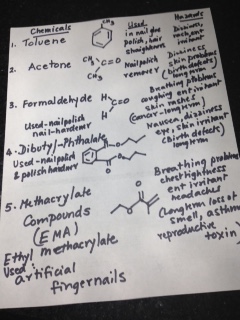 Chemicals Used Hazards
1. Toluene CH3 in nail glue polish, hair straighteners Dizziness, rash, ent irritant
2. Acetone CH3 C=O CH3 Nail polish remover Dizziness skin problems (birth defects) long term
3. Formaldehyde H C=O H Breathing problems coughing ent irritant skin rashes (cancer-longterm)
Used-nailpolish nail-hardener
4. Dibutyl-Phthalate Nausea, dizziness eye, skin irritant (birth defects) longterm
Used-nailpolish & polish hardener
5. Methacrylate Compounds (EMA) Breathing problems chest tightness ent irritant headaches (Long term loss of smell, asthma reproductive toxin)
Ethyl methacrylate
Used: artificial fingernails